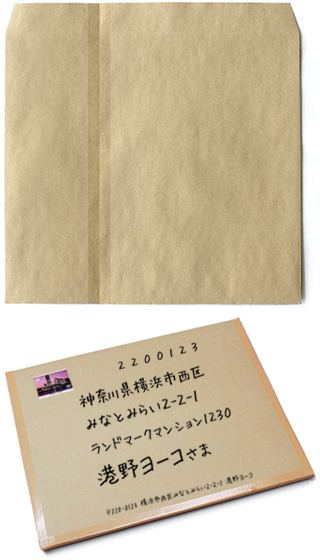 2200123
神奈川県横浜市西区
みなとみらい2-2-1
ランドマークマンション1230
港野ヨーコさま
〒220-0123 横浜市西区みなとみらい2-2-1 港野ヨーコ